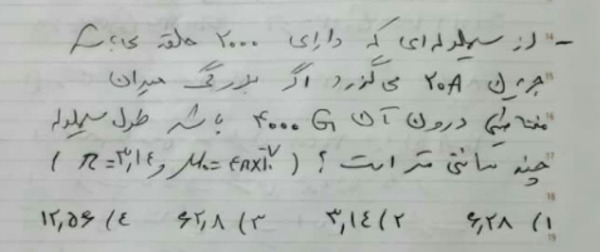 - از سیملوله‌ای که دارای ۲۰۰۰ حلقه می‌باشد
جریان ۲۰A می‌گذرد اگر بزرگی میدان
مغناطیسی درون آن ۴۰۰۰ G باشد طول سیملوله
چند سانتی متر است ؟ ( π=۳,۱٤ و μ₀=٤π×۱۰⁻⁷ )
۱) ۶,۲۸ ۲) ۳,۱٤ ۳) ۶۲,۸ ٤) ۱۲,۵۶